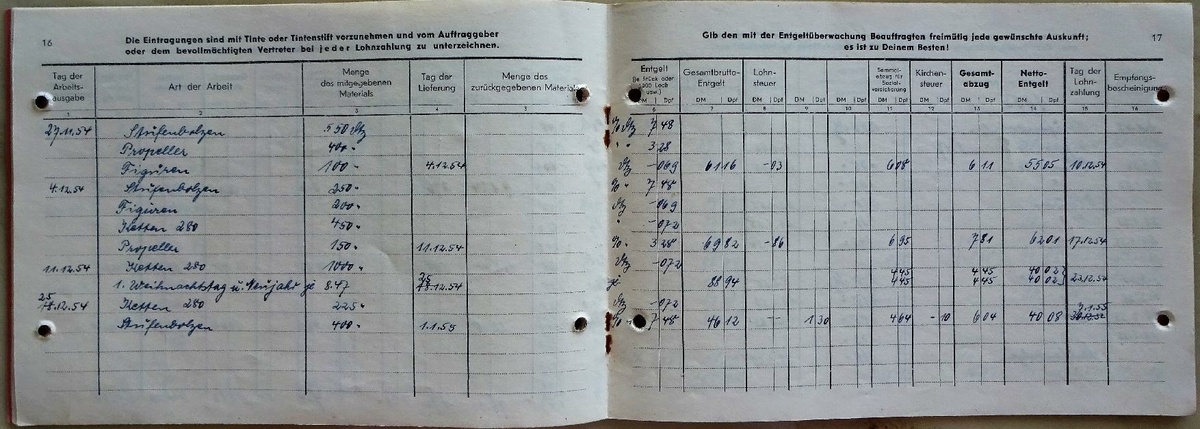 16
Die Eintragungen sind mit Tinte oder Tintenstift vorzunehmen und vom Auftraggeber
oder dem bevollmächtigten Vertreter bei jeder Lohnzahlung zu unterzeichnen.
Tag der Arbeitsausgabe
Art der Arbeit
Menge des mitgegebenen Materials
Tag der Lieferung
Menge des zurückgegebenen Materials
1 2 3 4 5
27.11.54 Stufenbolzen 550 Stg
Propeller 400 "
Figuren 100 " 4.12.54
4.12.54 Stufenbolzen 250 "
Figuren 200 "
Ketten 280 450 "
Propeller 150 " 11.12.54
11.12.54 Ketten 280 1000 "
1. Weihnachtstag u. Neujahr je 8.47 25 18.12.54
25 18.12.54 Ketten 280 225 "
Stufenbolzen 400 " 1.1.55
Gib den mit der Entgeltüberwachung Beauftragten freimütig jede gewünschte Auskunft;
es ist zu Deinem Besten!
17
Entgelt (je Stück oder 1000 Loch usw.) DM Dpf
Gesamtbrutto-Entgelt DM Dpf
Lohnsteuer DM Dpf
DM Dpf
Sammelabzug für Sozialversicherung DM Dpf
Kirchensteuer DM Dpf
Gesamtabzug DM Dpf
Netto-Entgelt DM Dpf
Tag der Lohnzahlung
Empfangsbescheinigung
6 7 8 9 10 11 12 13 14 15 16
% Stg 7 48
" " 3 28
Stg - 069 61 16 - 03 6 08 6 11 55 05 10.12.54
% " 7 48
Stg - 069
- 072
% " 3 28 69 82 - 86 6 95 7 81 62 01 17.12.54
Stg - 072
4 45 4 45 40 02
88 94 4 45 4 45 40 02 22.12.54
Stg - 072
% " 7 48 46 12 -- 1 30 4 64 - 10 6 04 40 08 7.1.55